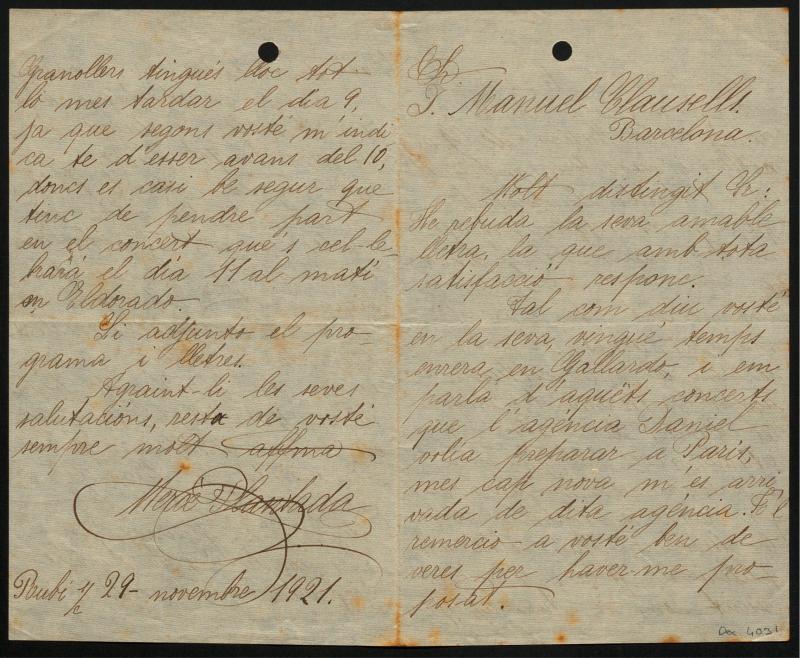 Sr
D. Manuel Clausells.
Barcelona.
Molt distingit Sr:
He rebuda la seva amable
lletra, la que amb tota
satisfacció responc.
Tal com diu vosté
en la seva, vingué temps
enrera en Gallardo, i em
parlà d'aquets concerts
que l'agéncia Daniel
volia preparar a Paris,
mes cap nova m'és arri
vada de dita agéncia. Li
remercio a vosté ben de
veres per haver-me pro-
posat.
Granollers tingués lloc tot
lo mes tardar el dia 9,
ja que segons vosté m'indi
ca te d'esser avans del 10,
doncs es casi be segur que
tinc de pendre part
en el concert que's cel-le-
brará el dia 11 al matí
en Eldorado.
Li adjunto el pro-
grama i lletres.
Agraint-li les seves
salutacións, resta de vosté
sempre molt affma
Mercè Plantada
Rubí 29- novembre 1921.
Doc 4031